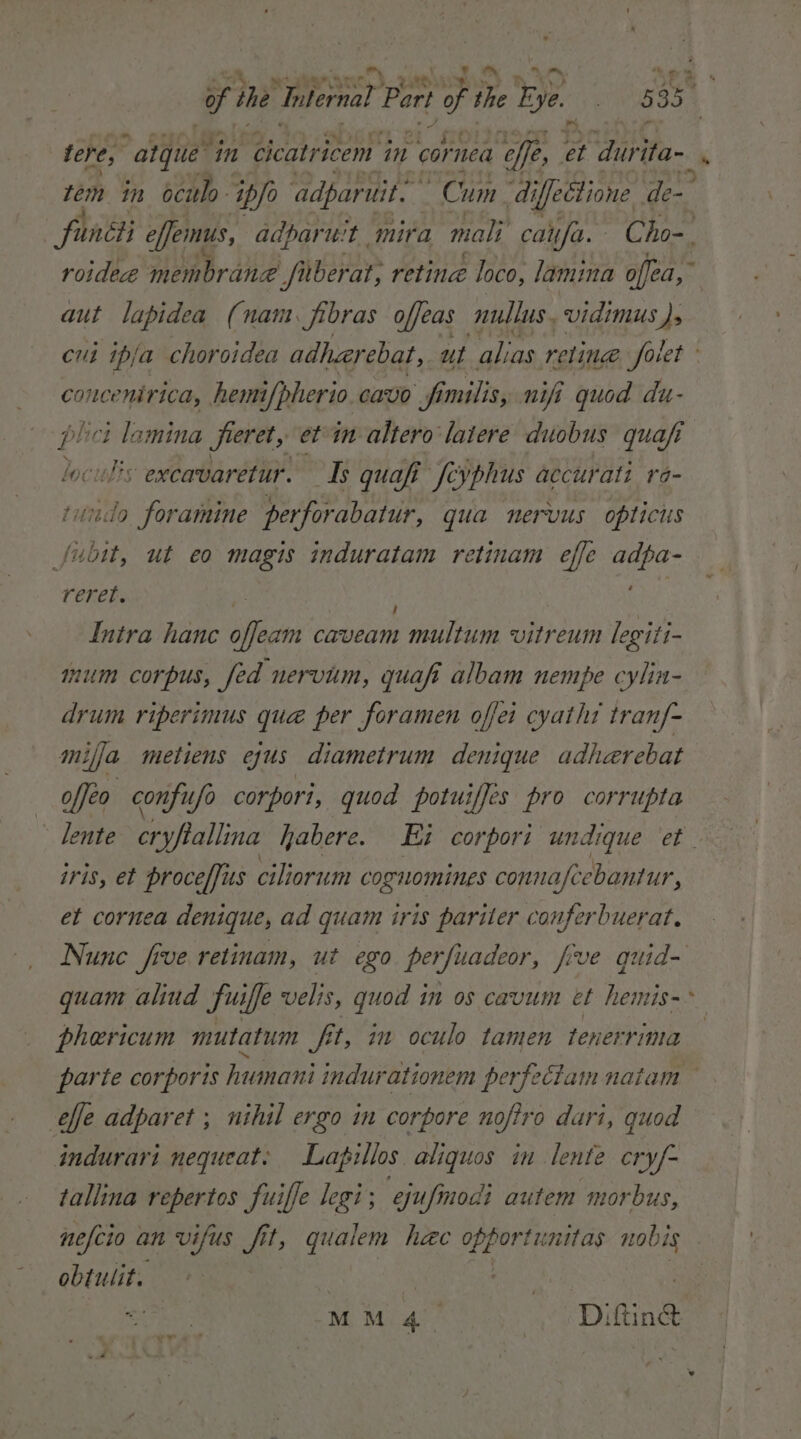 of the Internal Part of the Eye. 535
tere, atque in cicatricem in cornea eſſe, et durita-
tem in oculo ipſo adparuit. Cum diſſectione de-
functi eſſemus, adparuit mira mali cauſa. Cho-
roideæ membranæ ſuberat, retinæ loco, lamina oſſea,
aut lapidea (nam fibras oſſeas nullus vidimus),
cui ipſa choroidea adhærebat, ut alias retinæ ſolet
concentrica, hemiſpherio cavo ſimilis, niſi quod du-
plici lamina fieret, et in altero latere duobus quaſi
loculis excavaretur. Is quaſi ſcyphus accurati ro-
tundo foramine perforabatur, qua nervus opticus
ſubit, ut eo magis induratam retinam eſſe adpa-
reret.
Intra hanc oſſeam caveam multum vitreum legiti-
mum corpus, ſed nervum, quaſi albam nempe cylin-
drum riperimus quæ per foramen oſſei cyathi tranſ-
miſſa metiens ejus diametrum denique adhærebat
oſſeo confuſo corpori, quod potuiſſes pro corrupta
lente cryſtallina habere. Ei corpori undique et
iris, et proceſſus ciliorum cognomines connaſcebantur,
et cornea denique, ad quam iris pariter conferbuerat.
Nunc ſive retinam, ut ego perſuadeor, ſive quid-
quam aliud fuiſſe velis, quod in os cavum et hemis-
phæricum mutatum ſit, in oculo tamen tenerrima
parte corporis humani indurationem perfectam natam
eſſe adparet; nihil ergo in corpore noſtro dari, quod
indurari nequeat: Lapillos aliquos in lente cryſ-
tallina repertos fuiſſe legi; ejuſmodi autem morbus,
neſcio an viſus ſit, qualem hæc opportunitas nobis
obtulit.
M M 4 Diſtinct